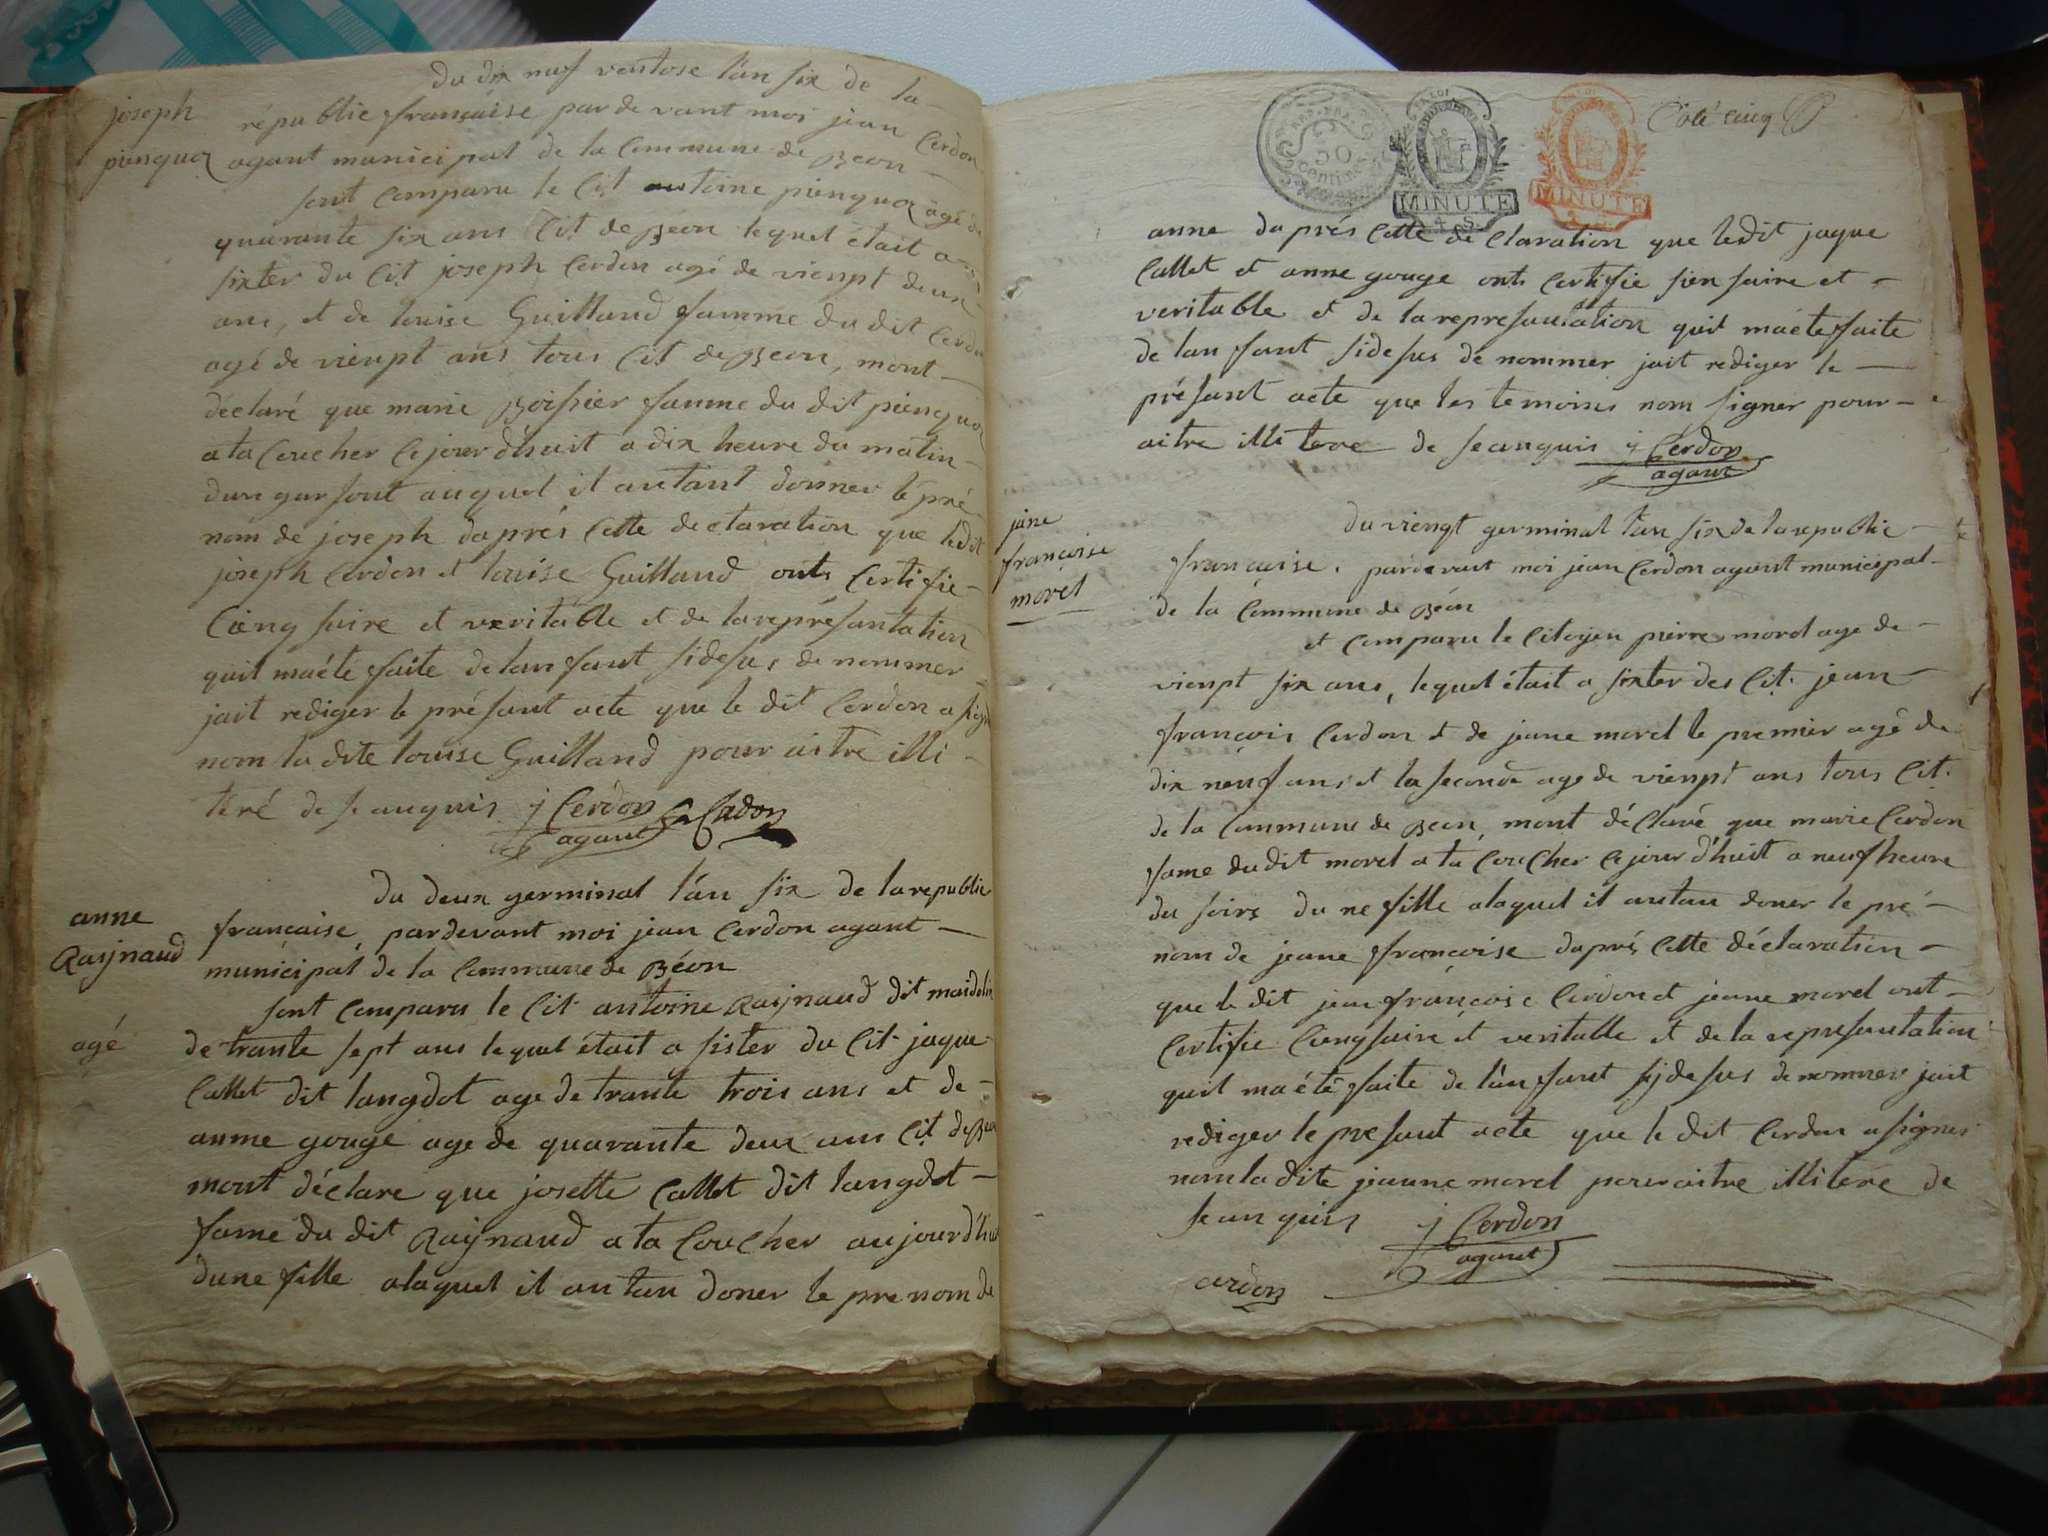 du dix neuf ventose l'an six de la
joseph
pienquoz
république française par de vant moi jean Cerdon
agant municipal de la Commune de Béon
sont Comparu le Cit antoine pienquoz âgé de
quarante six ans Cit de Béon lequel était a
sixter du Cit joseph Cerdon agé de vienpt deux
ans, et de louise Guilland famme du dit Cerdon
agé de vienpt ans tous Cit de Béon, mont
déclaré que marie Boissier famme du dit pienquoz
ata Coucher Cejour d'huit a dix heure du matin
dun garsont auquel il antant donner le pré
nom de joseph daprés Cette declaration que ledit
joseph Cerdon et louise Guilland onts Certifie
Cieng saire et veritable et de la représantation
quil maéte faite de lanfant sidesus de nommer
jait rediger le présant acte que le dit Cerdon a signé
nom la dite louise Guilland pour aitre illi
téré de se anquis j Cerdon Cardon
agant
du deux germinal l'an six de la republic
anne
Raijnaud
française, pardevant moi jean Cerdon agant
municipal de la Commune de Béon
sont Comparu le Cit antoine Raijnaud dit maidelin
agé
de trante sept ans lequel était a sister du Cit jaque
Callet dit langdot age de trante trois ans et de
anme gouge age de quarante deux ans Cit de Béon
mont déclare que josette Callet dit langdot
fame du dit Raijnaud ata Coucher aujourd'huit
dune fille alaquel il antan doner le prenom de
50 Centimes
MINUTE
MINUTE
Coté cinq
anne daprés Cette declaration que ledit jaque
Callet et anne gouge onts Certifie sien saire et
veritable et de la represantation quil maéte faite
de lanfant sidesus de nommer jait rediger le
présant acte que les temoins nom signer pour
aitre illi tere de se anquis j Cerdon
agant
jäne
françoise
morel
du viengt germinal l'an six de la republic
française, pardevant moi jean Cerdon agant municipal
de la Commune de Béon
et Comparu le Citoyen pierre morel age de
vienpt six ans, lequel était a sixter des Cit. jean
françois Cerdon et de jeane morel le premier agé de
dix neuf ans et la seconde age de vienpt ans tous Cit.
de la Commune de Béon, mont déclaré que marie Cerdon
fame du dit morel ata Coucher Cejour d'huit a neuf heure
du soirs du ne fille alaquel il antan doner le pré
nom de jeane françoise daprés Cette déclaration
que le dit jean françois Cerdon et jeane morel ont
Certifie Ciengsaire et veritable et de la represantation
quil ma été faite de l'anfant sijdesus denommer jait
rediger le presant acte que le dit Cerdon a signer
nom la dite jeanne morel pour aitre illitere de
se an quis j Cerdon
agant
Cerdon